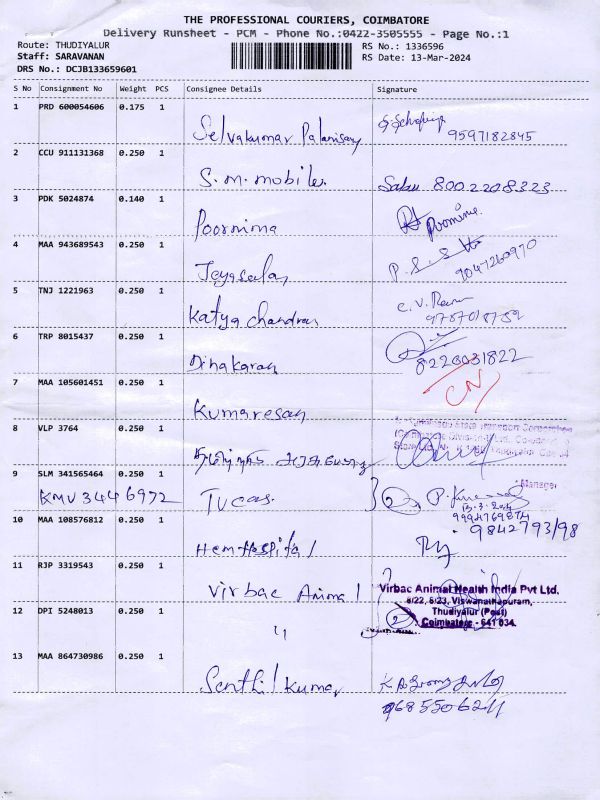 THE PROFESSIONAL COURIERS, COIMBATORE
Delivery Runsheet - PCM - Phone No.:0422-3505555 - Page No.:1
Route: THUDIYALUR
RS No.: 1336596
Staff: SARAVANAN
RS Date: 13-Mar-2024
DRS No.: DCJB133659601
S No Consignment No Weight PCS Consignee Details Signature
1 PRD 600054606 0.175 1
Selvakumar Palanisamy
9597182845
2 CCU 911131368 0.250 1
S.M. mobiles
Sabu 8002208323
3 PDK 5024874 0.140 1
Poornima Poornima
4 MAA 943689543 0.250 1
Jeyaseelan
9047260970
5 TNJ 1221963 0.250 1
Katya chandran
9787018752
6 TRP 8015437 0.250 1
Dinakaran 8220031822
7 MAA 105601451 0.250 1
Kumaresan
8 VLP 3764 0.250 1
9 SLM 341565464 0.250 1
Manager
KMV 3446972 Tucas
13.3.2024
9842793198
10 MAA 108576812 0.250 1
Hem Hospital
11 RJP 3319543 0.250 1
Virbac Animal
Virbac Animal Health India Pvt Ltd.
6/22, 6/23, Viswanathapuram,
12 DPI 5248013 0.250 1
Thudiyalur (Post)
" Coimbatore - 641 034.
13 MAA 864730986 0.250 1
Senthil kumar
9685506211